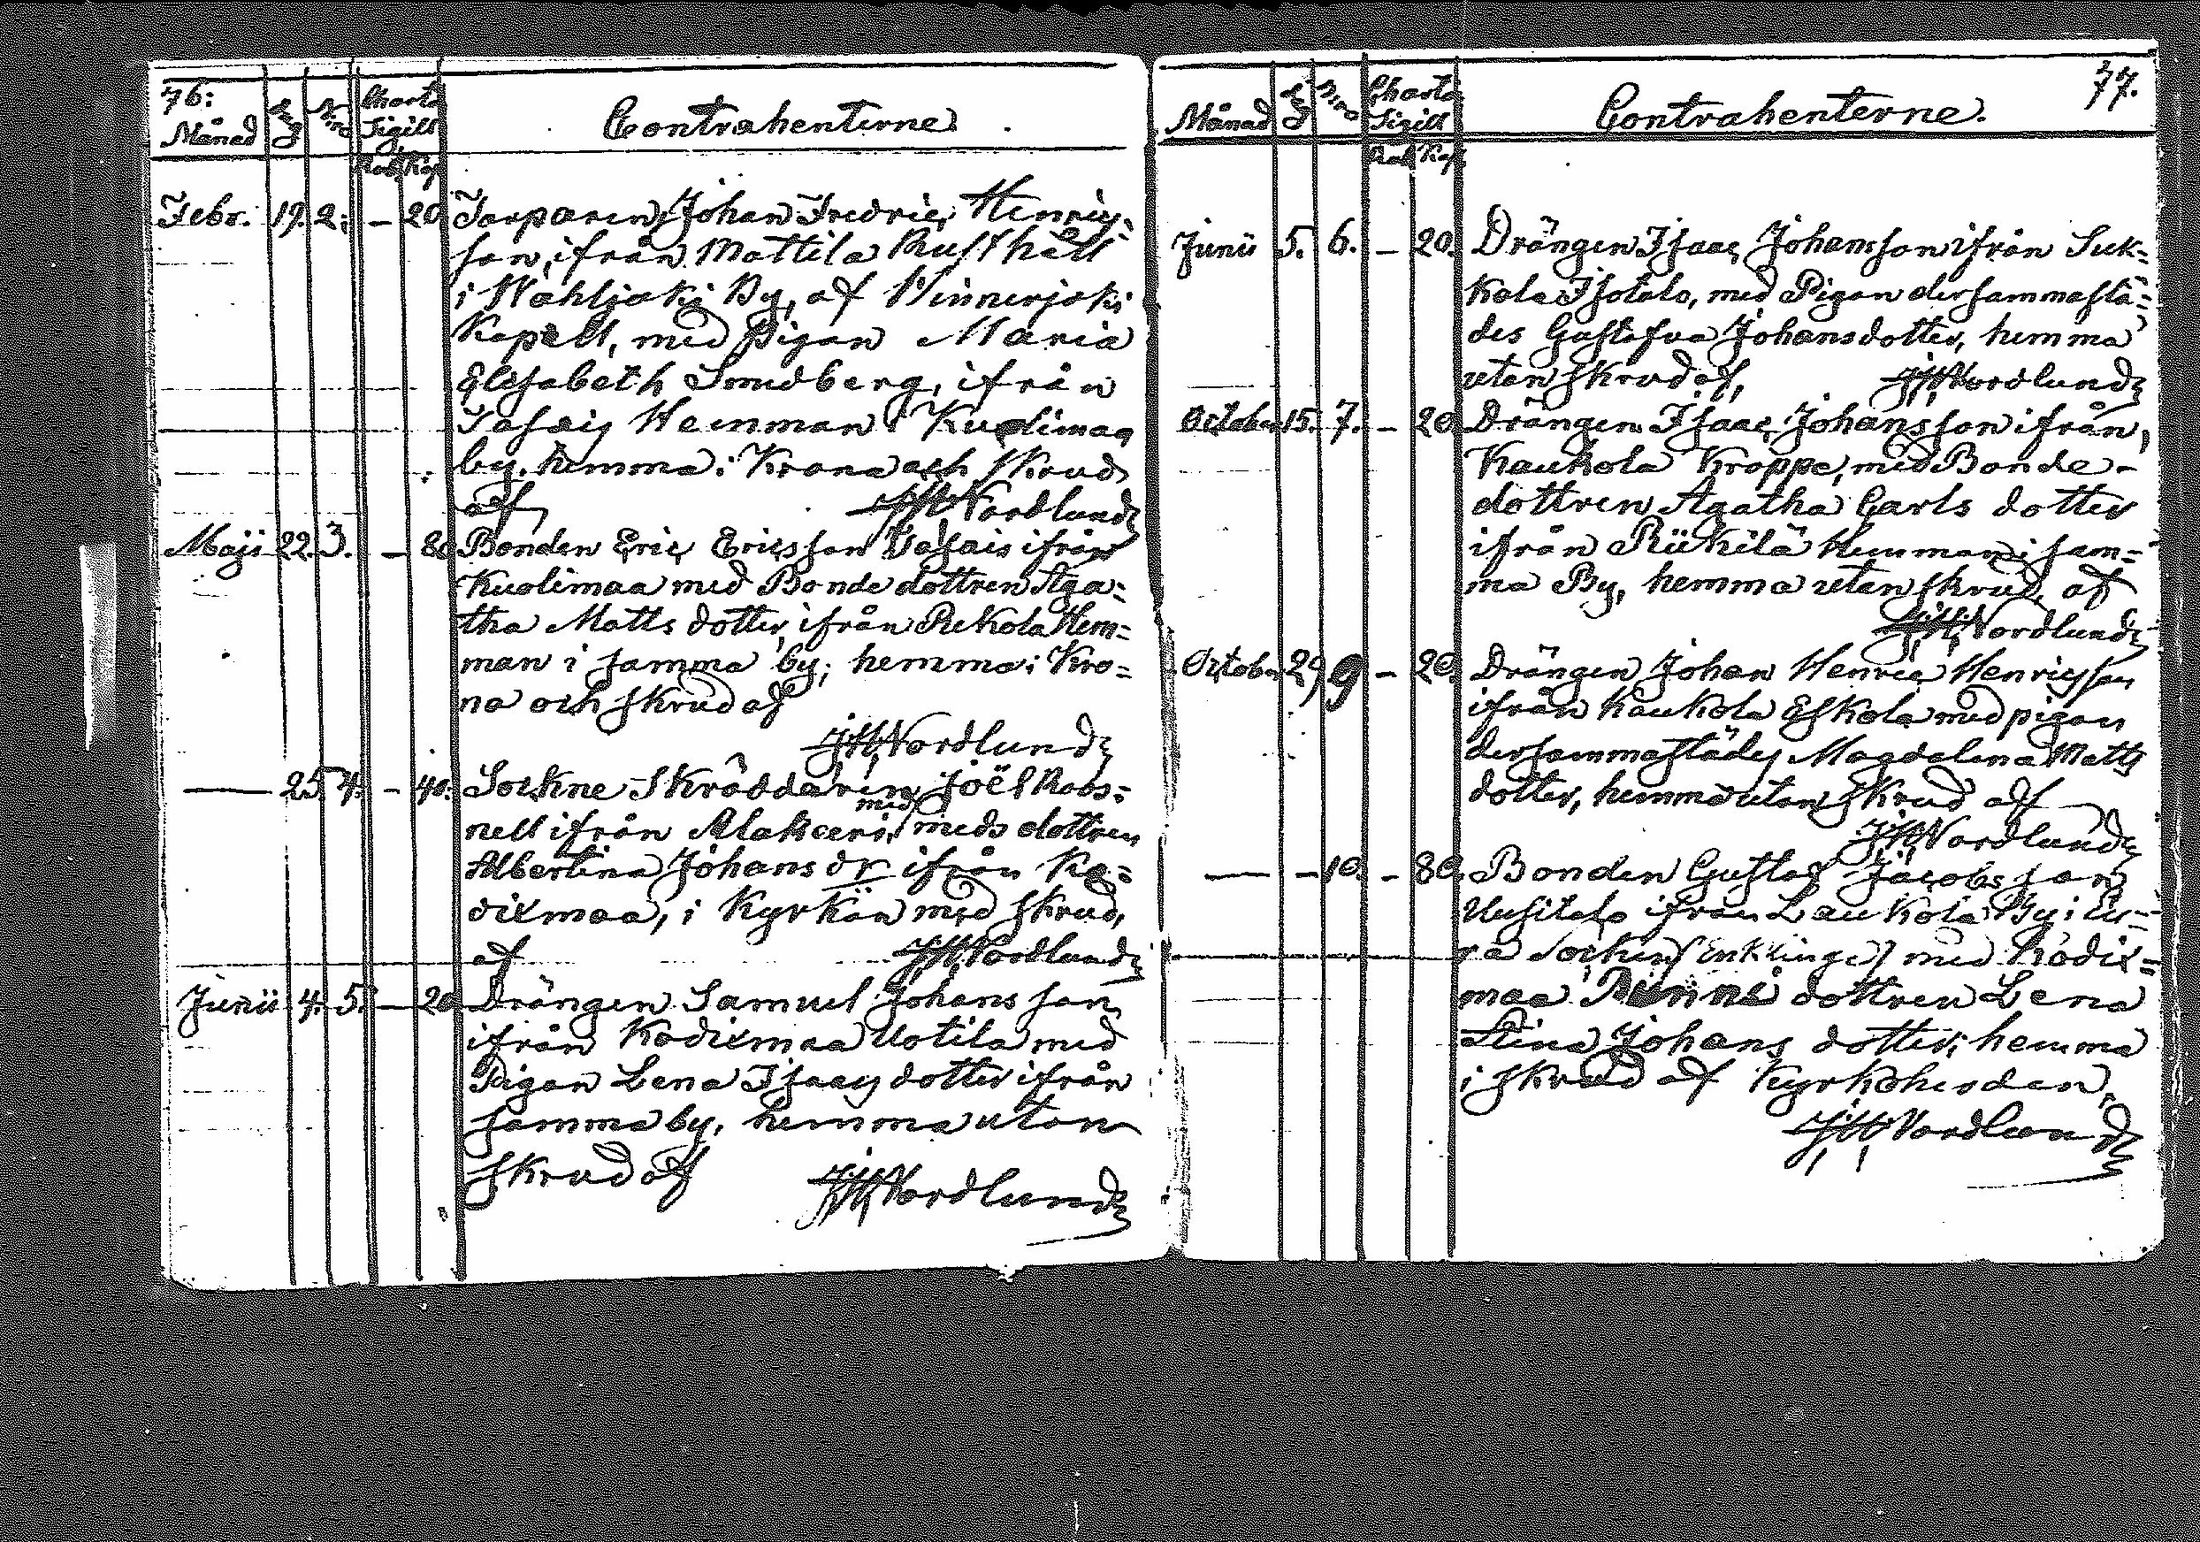 76:
Månad Dag N:ro Charta Sigill Contrahenterne
Rub. Kop.
Febr. 19. 2. — 20. Torparen, Johan Fredric, Henrics-
son, ifrån Mattila Rusthåll
i Wahljoki By, af Hinnerjoki
Kapell, med Pigan Maria
Elisabeth Smedberg, ifrån
Hemman i Kuolimaa
by. hemma i Krona och Skrud
af JH Nordlund
Maji 22. 3. — 80 Bonden Eric Ericsson ifrån
Kuolimaa med Bonde dottren Aga-
tha Matts dotter ifrån Hem-
man i samma by; hemma i Kro-
na och skrud af
JH Nordlund
— 25 4. — 40. Sockne Skräddaren Joël Robs-
nell ifrån med dottren
Albertina Johans dr ifrån Ko-
dixmaa, i Kyrkan med skrud,
af JH Nordlund
Junii 4. 5. — 20 Drängen Samuel Johansson
ifrån Kodixmaa Uotila med
Pigan Lena Isaacs dotter ifrån
samma by, hemma utan
skrud af JH Nordlund
77.
Månad Dag N:ro Charta Sigill Contrahenterne.
Rub. Kop.
Junii 5. 6. — 20. Drängen Isaac Johansson ifrån Suk-
kola Isotalo, med Pigan dersammastä-
des Gustafva Johansdotter, hemma
utan skrud af, JH Nordlund
October 15. 7. — 20 Drängen Isaac Johansson ifrån
Kaukola Kroppe, med Bonde-
dottren Agatha Carls dotter
ifrån Riikilä Hemman i sam-
ma By, hemma utan skrud, af
JH Nordlund
October 29 9 — 20. Drängen Johan Henric Henricsson
ifrån Kaukola Eskola med pigan
dersammastädes Magdalena Matts
dotter, hemma utan skrud af
JH Nordlund
— — 10. — 80. Bonden Gustaf Jacobsson
Uusitalo ifrån Laukola By i Eu-
ra Socken (Enklinge) med Kodix-
maa dottren Lena
Stina Johans dotter; hemma
i skrud af Kyrkoherden.
JH Nordlund